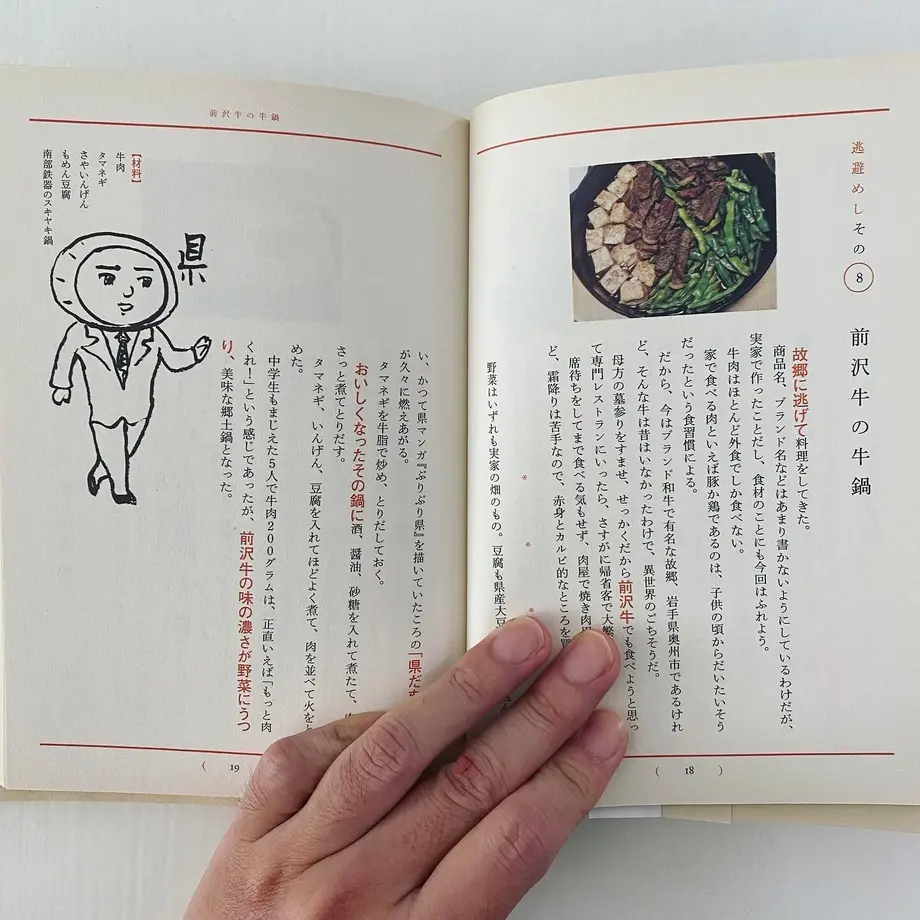 逃避めしその8 前沢牛の牛鍋
故郷に逃げて料理をしてきた。
商品名、ブランド名などはあまり書かないようにしているわけだが、
実家で作ったことだし、食材のことにも今回はふれよう。
牛肉はほとんど外食でしか食べない。
家で食べる肉といえば豚か鶏であるのは、子供の頃からだいたいそう
だったという食習慣による。
だから、今はブランド和牛で有名な故郷、岩手県奥州市であるけれ
ど、そんな牛は昔はいなかったわけで、異世界のごちそうだ。
母方の墓参りをすませ、せっかくだから前沢牛でも食べようと思っ
て専門レストランにいったら、さすがに帰省客で大繁
席待ちをしてまで食べる気もせず、肉屋で焼き肉
ど、霜降りは苦手なので、赤身とカルビ的なところを
* * *
野菜はいずれも実家の畑のもの。豆腐も県産大豆
( 18 )
前沢牛の牛鍋
い、かつて県マンガ『ぶりぶり県』を描いていたころの「県だ
が久々に燃えあがる。
タマネギを牛脂で炒め、とりだしておく。
おいしくなったその鍋に酒、醤油、砂糖を入れて煮たて、
さっと煮てとりだす。
タマネギ、いんげん、豆腐を入れてほどよく煮て、肉を並べて火を
めた。
中学生もまじえた5人で牛肉200グラムは、正直いえば「もっと肉
くれ!」という感じであったが、前沢牛の味の濃さが野菜にうつ
り、美味な郷土鍋となった。
県
【材料】
牛肉
タマネギ
さやいんげん
もめん豆腐
南部鉄器のスキヤキ鍋
( 19